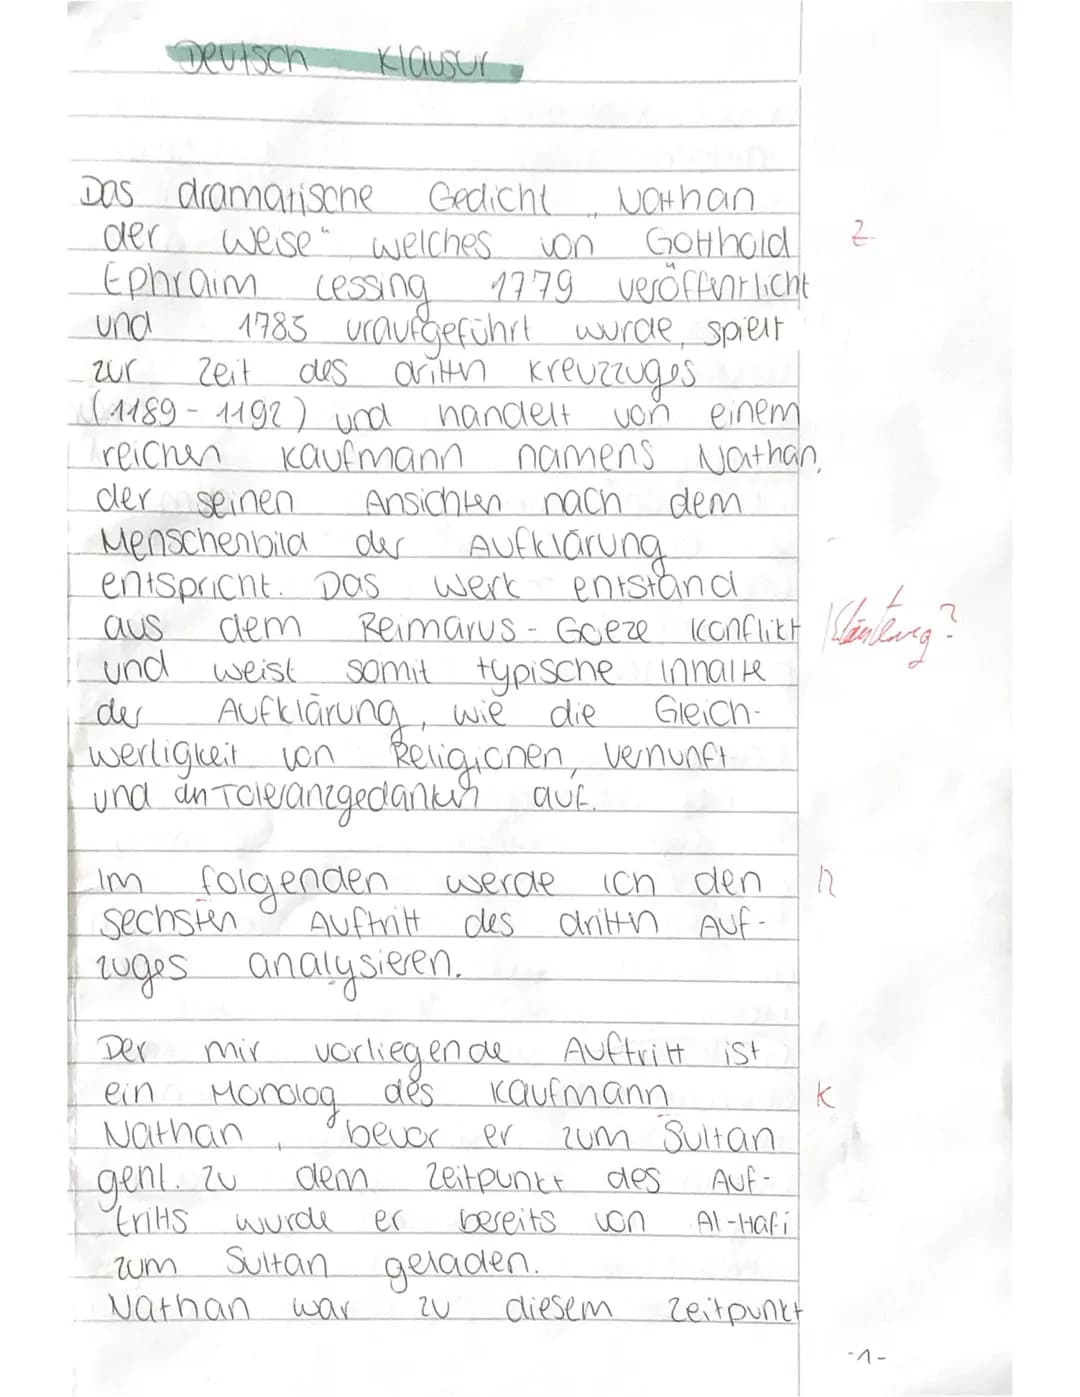 Deutsch Klausur
Das dramatische Gedicht „Nathan
der Weise" welches von Gotthold
Z
Ephraim Lessing 1779 veröffentlicht
und 1783 uraufgeführt wurde, spielt
zur Zeit des dritten Kreuzzuges
(1189 - 1192) und handelt von einem
reichen Kaufmann namens Nathan,
der seinen Ansichten nach dem
Menschenbild der Aufklärung
entspricht. Das Werk entstand
aus dem Reimarus - Goeze Konflikt
Erläuterung?
und weist somit typische Inhalte
der Aufklärung, wie die Gleich-
wertigkeit von Religionen, Vernunft
und an Toleranzgedanken auf.
Im folgenden werde ich den
R
sechsten Auftritt des dritten Auf-
zuges analysieren.
Der mir vorliegende Auftritt ist
ein Monolog des Kaufmann
K
Nathan, bevor er zum Sultan
geht. Zu dem Zeitpunkt des Auf-
tritts wurde er bereits von Al-Hafi
zum Sultan geladen.
Nathan war zu diesem Zeitpunkt
-1-